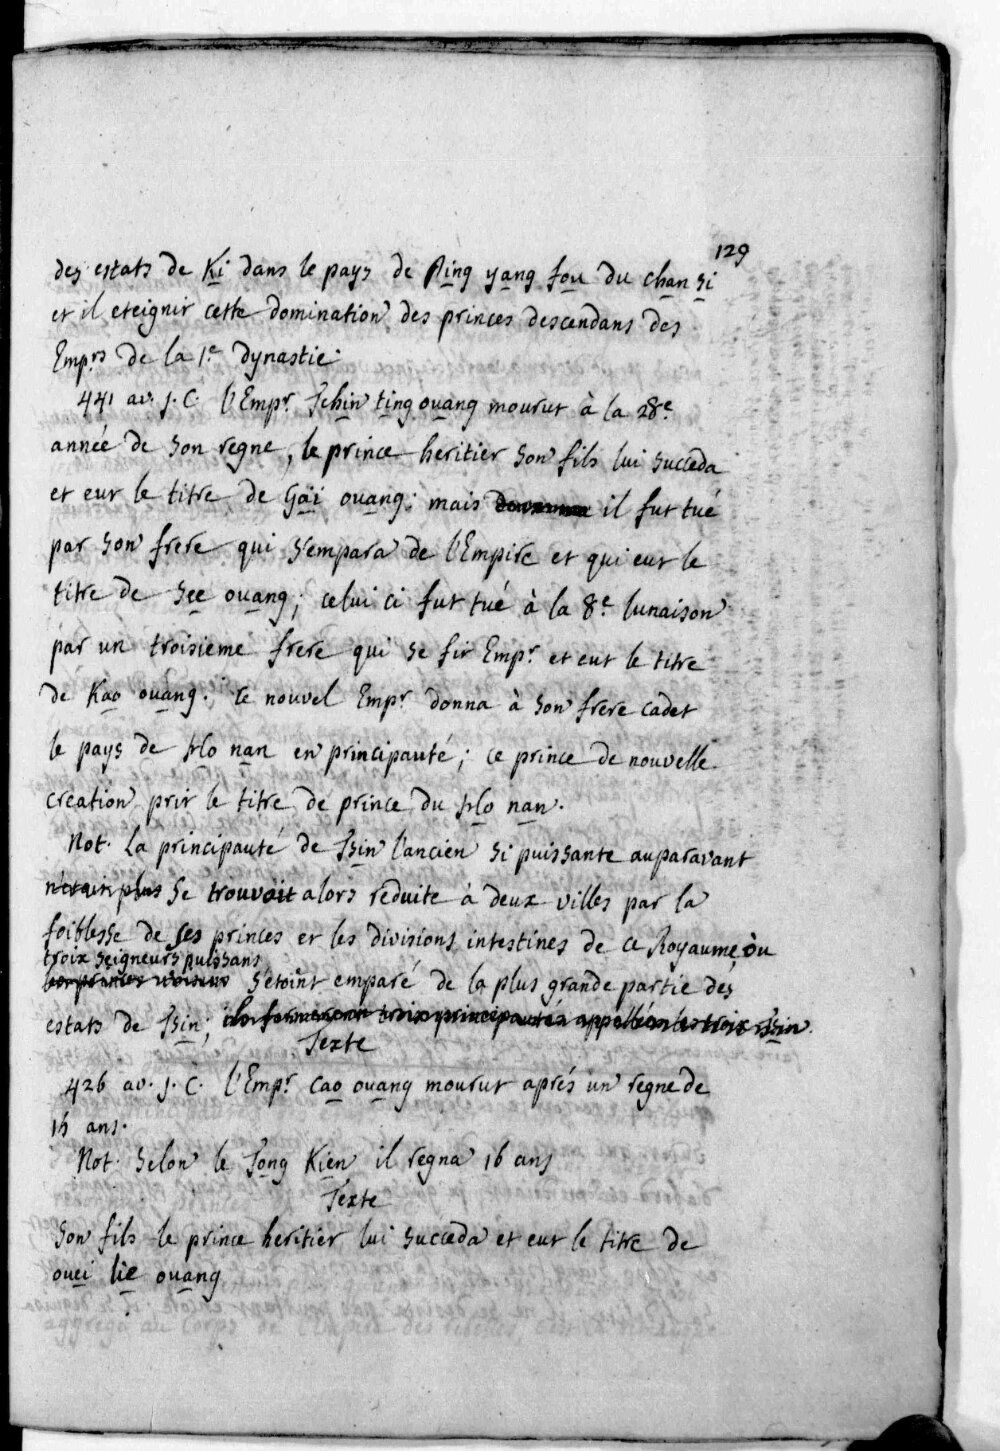 129
des estats de Ki dans le pays de Ping yang fou du chan si
et il eteignit cette domination des princes descendans des
Emprs de la 1e dynastie.
441 av. J. C. l'Empr Tchin ting ouang mourut à la 28e
année de son regne, le prince heritier son fils lui succeda
et eut le titre de Gäi ouang: mais il fut tué
par son frere qui s'empara de l'Empire et qui eut le
titre de See ouang; celui ci fut tué à la 8e lunaison
par un troisieme frere qui se fit Empr et eut le titre
de Kao ouang. ce nouvel Empr donna à son frere cadet
le pays de Ho nan en principauté; ce prince de nouvelle
creation prit le titre de prince du Ho nan.
Not. La principauté de Tsin l'ancien si puissante auparavant
n'etait plus se trouvoit alors reduite à deux villes par la
foiblesse de ses princes et les divisions intestines de ce Royaume, où
troix seigneurs puissans
les princes voisins s'etoint emparé de la plus grande partie des
estats de Tsin; ils formerent troix principautés appellées les troix Tsin.
Texte
426 av. J. C. l'Empr Cao ouang mourut aprés un regne de
15 ans.
Not. Selon le Tong Kien il regna 16 ans
Texte
Son fils le prince heritier lui succeda et eut le titre de
ouei lie ouang